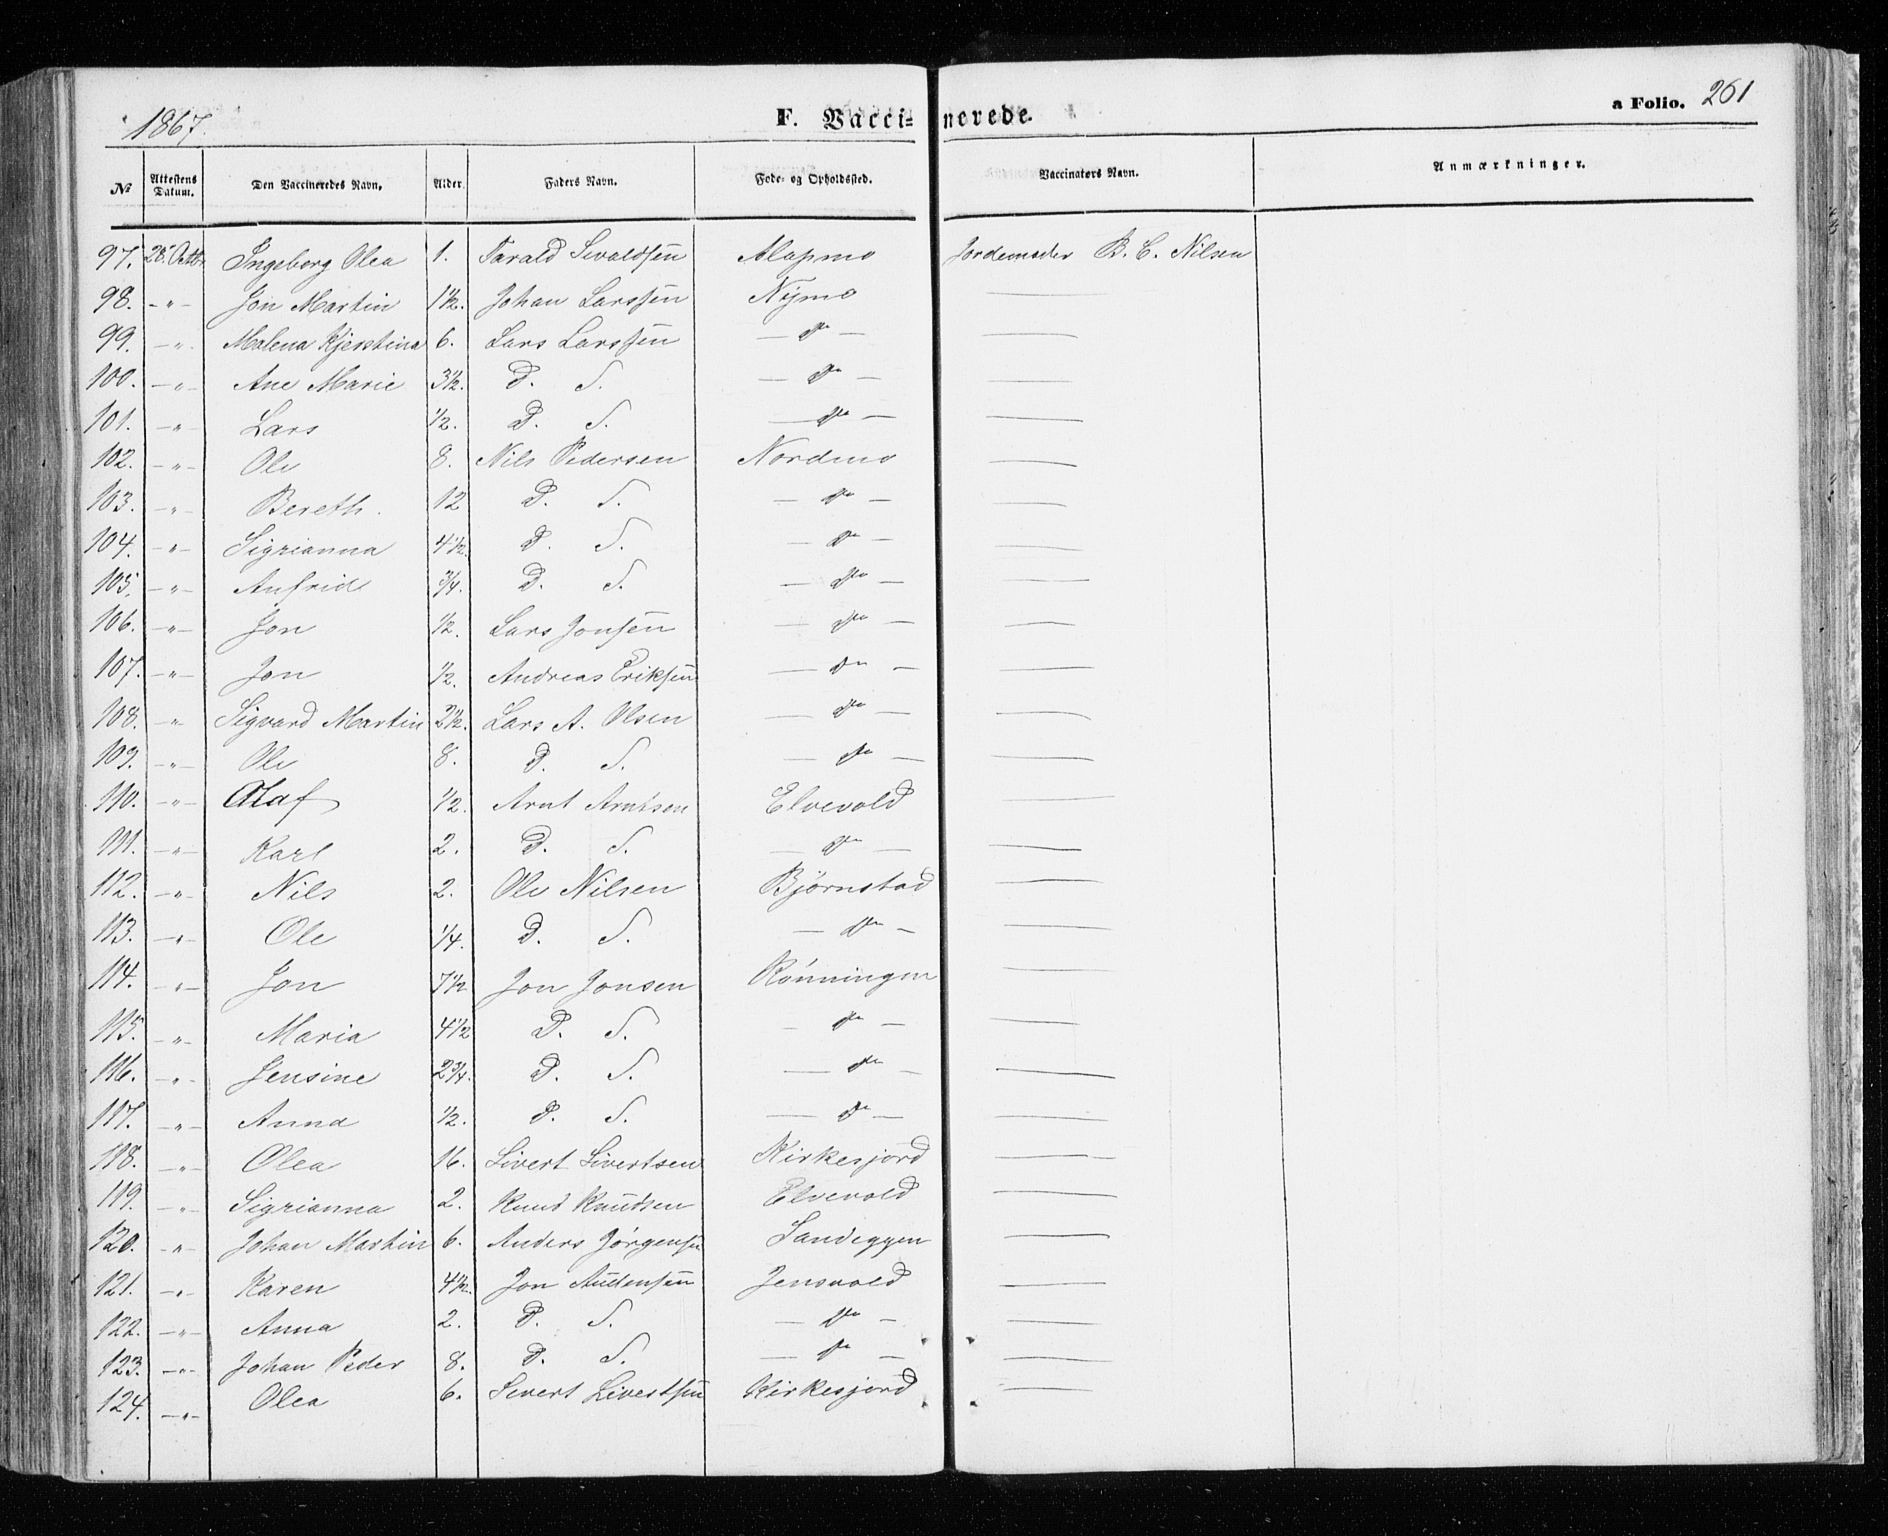 1867. F. Vaccinerede. a Folio. 261
No Attestens Datum. Den Vaccineredes Navn. Alder. Faders Navn. Føde- og Opholdssted. Vaccinators Navn. Anmærkninger.
97. 28. Octbr Ingeborg Olea 1. Tarald Sivaldsen Alapmo Jordemoder B. C. Nilsen
98. —"— Jon Martin 1½. Johan Larssen Nymo ——
99. —"— Malena Kjerstina 6. Lars Larssen — do — ——
100. —"— Ane Marie 3½. D. S. — do — ——
101. —"— Lars ½. D. S. — do — ——
102. —"— Ole 8. Nils Pedersen Nordmo ——
103. —"— Bereth. 12 D. S. — do — ——
104. —"— Sigrianna 4½. D. S. — do — ——
105. —"— Anfrid ¾. D. S. — do — ——
106. —"— Jon ½. Lars Jonsen — do — ——
107. —"— Jon ½. Andreas Eriksen — do — ——
108. " Sigvard Martin 2½. Lars A. Olsen — do — ——
109. —"— Ole 8. D. S. — do — ——
110. —"— Olaf ½. Arnt Arntsen Elvevold ——
111. —"— Karl 2. D. S. — do — ——
112. —"— Nils 2. Ole Nilsen Bjørnstad ——
113. —"— Ole ¼. D. S. — do — ——
114. —"— Jon 7½ Jon Jonsen Rønningen ——
115. —"— Maria 4½ D. S. — do — ——
116. —"— Jensine 2¾. D. S. — do — ——
117. —"— Anna ½. D. S. — do — ——
118. —"— Olea 16. Sivert Sivertsen Kirkesjord ——
119. —"— Sigrianna 2. Knud Knudsen Elvevold ——
120. —"— Johan Martin 6. Anders Jørgensen Sandeggen ——
121. —"— Karen 4½. Jon Audensen Jensvold ——
122. —"— Anna 2. D. S. — do — ——
123. —"— Johan Peder 8. D. S. — do — ——
124. —"— Olea 6. Sivert Sivertsen Kirkesjord ——